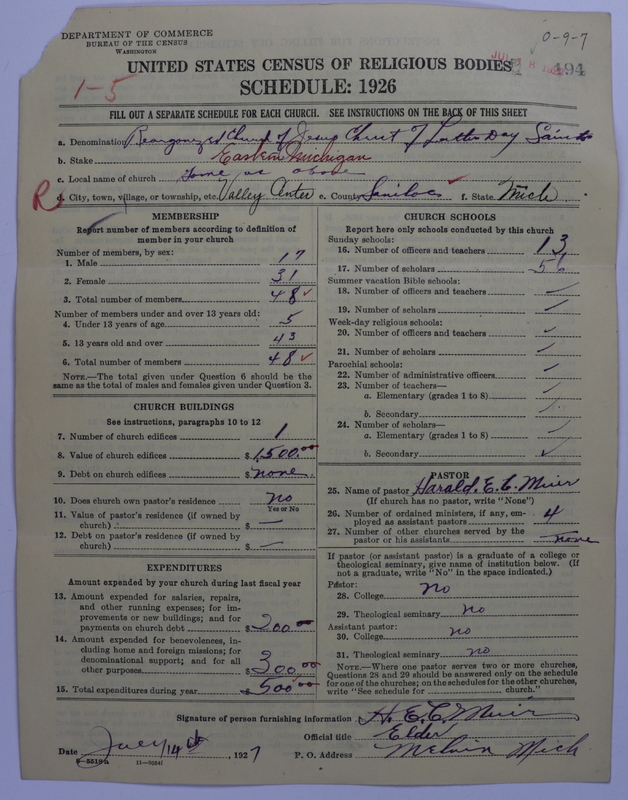 DEPARTMENT OF COMMERCE
BUREAU OF THE CENSUS
WASHINGTON
0-9-7
1-5
494
UNITED STATES CENSUS OF RELIGIOUS BODIES
SCHEDULE: 1926
FILL OUT A SEPARATE SCHEDULE FOR EACH CHURCH. SEE INSTRUCTIONS ON THE BACK OF THIS SHEET
a. Denomination Reorganized Church of Jesus Christ of Latter Day Saints
b. Stake Eastern Michigan
c. Local name of church same as above
R
d. City, town, village, or township, etc. Valley Center e. County Sanilac f. State Mich
MEMBERSHIP
Report number of members according to definition of
member in your church
Number of members, by sex:
1. Male 17
2. Female 31
3. Total number of members 48
Number of members under and over 13 years old:
4. Under 13 years of age 5
5. 13 years old and over 43
6. Total number of members 48
NOTE.—The total given under Question 6 should be the
same as the total of males and females given under Question 3.
CHURCH BUILDINGS
See instructions, paragraphs 10 to 12
7. Number of church edifices 1
8. Value of church edifices $ 1,500.00
9. Debt on church edifices $ none
10. Does church own pastor's residence no
Yes or No
11. Value of pastor's residence (if owned by
church) $ —
12. Debt on pastor's residence (if owned by
church) $ —
EXPENDITURES
Amount expended by your church during last fiscal year
13. Amount expended for salaries, repairs,
and other running expenses; for im-
provements or new buildings; and for
payments on church debt $ 200.00
14. Amount expended for benevolences, in-
cluding home and foreign missions; for
denominational support; and for all
other purposes $ 300.00
15. Total expenditures during year $ 500.00
CHURCH SCHOOLS
Report here only schools conducted by this church
Sunday schools:
16. Number of officers and teachers 13
17. Number of scholars 56
Summer vacation Bible schools:
18. Number of officers and teachers
19. Number of scholars
Week-day religious schools:
20. Number of officers and teachers
21. Number of scholars
Parochial schools:
22. Number of administrative officers
23. Number of teachers—
a. Elementary (grades 1 to 8)
b. Secondary
24. Number of scholars—
a. Elementary (grades 1 to 8)
b. Secondary
PASTOR
25. Name of pastor Harald. E. C. Muir
(If church has no pastor, write "None")
26. Number of ordained ministers, if any, em-
ployed as assistant pastors 4
27. Number of other churches served by the
pastor or his assistants none
If pastor (or assistant pastor) is a graduate of a college or
theological seminary, give name of institution below. (If
not a graduate, write "No" in the space indicated.)
Pastor:
28. College no
29. Theological seminary no
Assistant pastor:
30. College no
31. Theological seminary no
NOTE.—Where one pastor serves two or more churches,
Questions 28 and 29 should be answered only on the schedule
for one of the churches; on the schedules for the other churches,
write "See schedule for church."
Signature of person furnishing information H. E. C. Muir
Official title Elder
Date July 14th, 1927 P. O. Address Melvin Mich